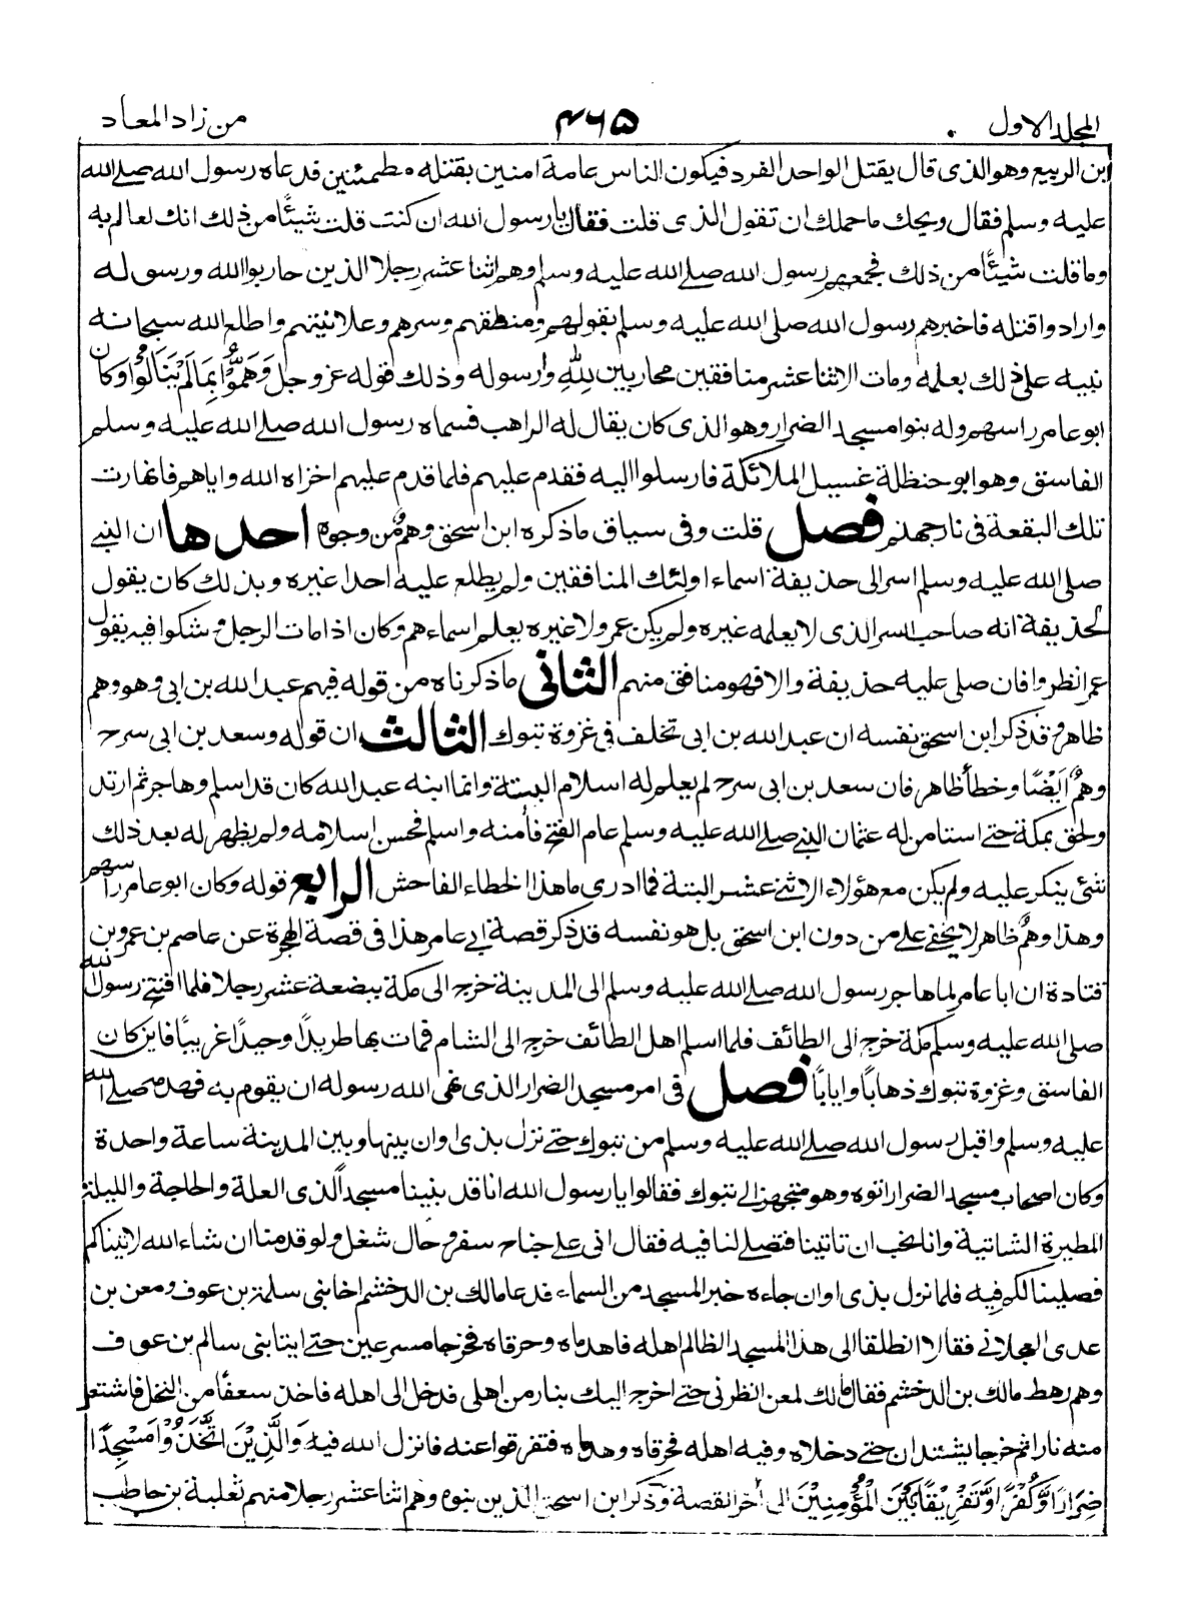 المجلد الاول
۴۶۵
من زاد المعاد
ابن الربيع وهو الذى قال يقتل الواحد الفرد فيكون الناس عامة امنين بقتله مطمئنين فدعاه رسول الله صلے الله
عليه وسلم فقال ويحك ما حملك ان تقول الذى قلت فقال يا رسول الله ان كنت قلت شيئًا من ذلك انك لعالم به
وما قلت شيئًا من ذلك فجمعهم رسول الله صلے الله عليه وسلم وهم اثنا عشر رجلا الذين حاربوا الله ورسوله
وارادوا قتله فاخبرهم رسول الله صلى الله عليه وسلم بقولهم ومنطقهم وسرهم وعلانيتهم واطلع الله سبحانه
نبيه على ذلك بعلمه ومات الاثنا عشر منافقين محاربين لله وارسوله وذلك قوله عز وجل وَهَمُّوْا بِمَا لَمْ يَنَالُوْا وكان
ابو عامر راسهم وله بنوا مسجد الضرار وهو الذى كان يقال له الراهب فسماه رسول الله صلے الله عليه وسلم
الفاسق وهو ابو حنظلة غسيل الملائكة فارسلوا اليه فقدم عليهم فلما قدم عليهم اخزاه الله واياهم فانهارت
تلك البقعة فى نار جهنم فصل قلت وفى سياق ما ذكره ابن اسحق وهمٌ من وجوه احدها ان النبے
صلى الله عليه وسلم اسر الى حذيفة اسماء اولئك المنافقين ولم يطلع عليه احدا غيره وبذلك كان يقول
لحذيفة انه صاحب السر الذى لا يعلمه غيره ولم يكن عمر ولا غيره يعلم اسماءهم وكان اذا مات الرجل وشكوا فيه يقول
عمر انظروا فان صلى عليه حذيفة والا فهو منافق منهم الثانى ما ذكرناه من قوله فيهم عبد الله بن ابى وهو وهم
ظاهر وقد ذكر ابن اسحق نفسه ان عبد الله بن ابى تخلف فى غزوة تبوك الثالث ان قوله وسعد بن ابى سرح
وهمٌ ايضًا وخطأ ظاهر فان سعد بن ابى سرح لم يعلم له اسلام البتة وانما ابنه عبد الله كان قد اسلم وهاجر ثم ارتد
ولحق بمكة حتے استامن له عثمان النبے صلے الله عليه وسلم عام الفتح فأمنه واسلم فحسن اسلامه ولم يظهر له بعد ذلك
شئ ينكر عليه ولم يكن مع هؤلاء الاثنے عشر البتة فما ادرى ما هذا الخطاء الفاحش الرابع قوله وكان ابو عامر راسهم
وهذا وهمٌ ظاهر لا يخفے على من دون ابن اسحق بل هو نفسه قد ذكر قصة ابے عامر هذا فى قصة الهجرة عن عاصم بن عمرو بن
قتادة ان ابا عامر لما هاجر رسول الله صلے الله عليه وسلم الى المدينة خرج الى مكة ببضعة عشر رجلا فلما افتتح رسول الله
صلى الله عليه وسلم مكة خرج الى الطائف فلما اسلم اهل الطائف خرج الى الشام فمات بها طريدًا وحيدًا غريبًا فاين كان
الفاسق وغزوة تبوك ذهابًا وايابًا فصل فى امر مسجد الضرار الذى نهى الله رسوله ان يقوم به فهدمه صلے الله
عليه وسلم واقبل رسول الله صلے الله عليه وسلم من تبوك حتے نزل بذى اوان بينها وبين المدينة ساعة واحدة
وكان اصحاب مسجد الضرار اتوه وهو متجهز الے تبوك فقالوا يا رسول الله انا قد بنينا مسجدًا لذى العلة والحاجة والليلة
المطيرة الشاتية وانا نحب ان تاتينا فتصلے لنا فيه فقال انى علے جناح سفر وحال شغل ولو قدمنا ان شاء الله لاتيناكم
فصلينا لكم فيه فلما نزل بذى اوان جاءه خبر المسجد من السماء فدعا مالك بن الدخشم اخا بنى سلمة بن عوف ومعن بن
عدى العجلانے فقال انطلقا الى هذا المسجد الظالم اهله فاهدماه وحرقاه فخرجا مسرعين حتے اتيا بنى سالم بن عوف
وهم رهط مالك بن الدخشم فقال مالك لمعن انظرنى حتے اخرج اليك بنار من اهلى فدخل الى اهله فاخذ سعفًا من النخل فاشتعل
منه نارا ثم خرجا يشتدان حتے دخلاه وفيه اهله فحرقاه وهدماه فتفرقوا عنه فانزل الله فيه وَالَّذِيْنَ اتَّخَذُوْا مَسْجِدًا
ضِرَارًا وَّكُفْرًا وَّتَفْرِيْقًا بَيْنَ الْمُؤْمِنِيْنَ الى أخر القصة وذكر ابن اسحق الذين بنوه وهم اثنا عشر رجلا منهم ثعلبة بن حاطب